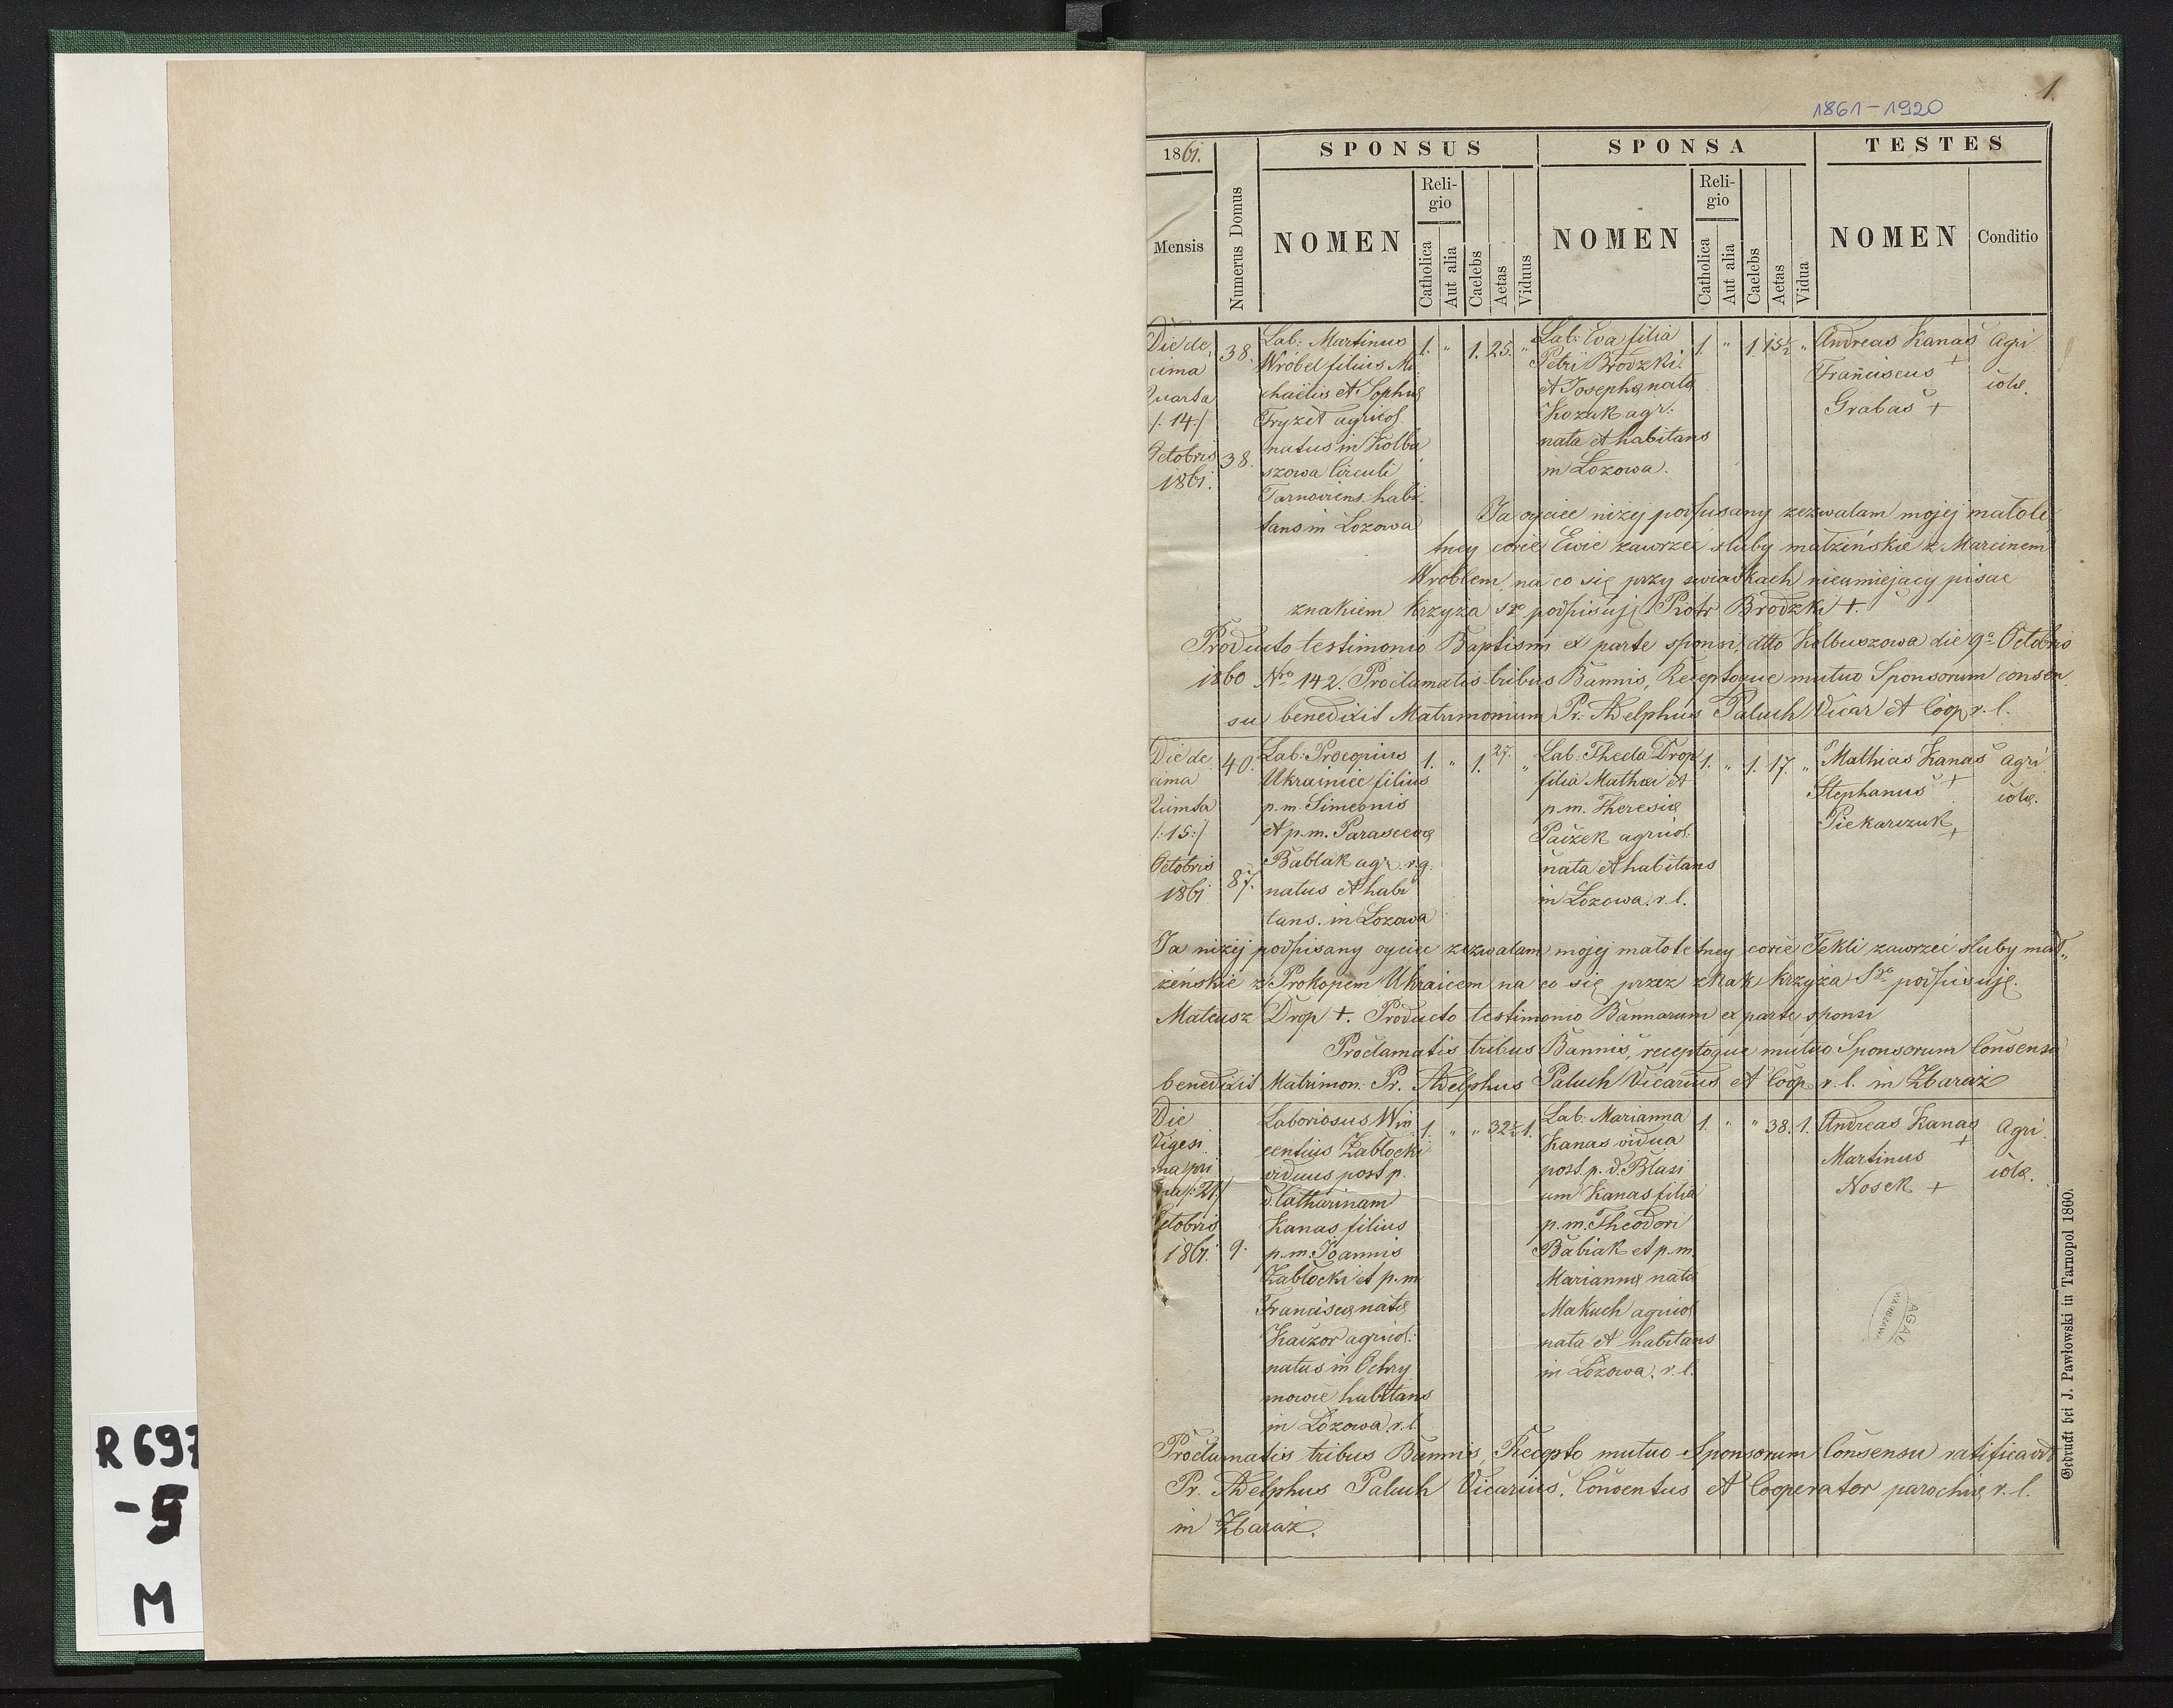 R 697
-5
M
1.
1861-1920
1861.
SPONSUS
SPONSA
TESTES
Mensis
Numerus Domus
NOMEN
Reli-
gio
Catholica
Aut alia
Caelebs
Aetas
Viduus
NOMEN
Reli-
gio
Catholica
Aut alia
Caelebs
Aetas
Vidua
NOMEN
Conditio
Die de
cima
Quarta
/: 14 :/
Octobris
1861.
38.
38.
Lab: Martinus
Wróbel filius Mi
chaëlis et Sophię
Fryzet agricol.
natus in Kolbu
szowa Circuli
Tarnoviens. habi
tans in Lozowa
1. " 1. 25. "
Lab: Eva filia
Petri Brodzki
et Josephę nata
Kozak agr:
nata et habitans
in Lozowa.
1. " 1. 15½ "
Andreas Kanas +
Franciscus
Grabas +
Agri
colæ.
Ja oyciec niżej podpisany zezwalam mojej małole
tney corie Ewie zawrzeć śluby małżińskie z Marcinem
Wroblem, na co się przy swiadkach nieumiejący pisac
znakiem krzyża sgo podpisuję Piotr Brodzki +.
Producto testimonio Baptismi ex parte sponsi, dtto Kolbuszowa die 9a Octobris
1860 Nro 142. Proclamatis tribus Bannis, Receptoque mutuo Sponsorum consen
su benedixit Matrimonium Pr. Adelphus Paluch Vicar et Coop r. l.
Die de
cima
Quinta
/: 15 :/
Octobris
1861
40.
87.
Lab: Procopius
Ukrainiec filius
p.m. Simeonis
et p.m. Parascevę
Bablak agr. r.g.
natus et habi
tans. in Lozowa
1. " 1. 27. "
Lab. Thecla Drop
filia Mathæi et
p.m. Theresię
Paizek agricol.
nata et habitans
in Lozowa. r. l.
1. " 1. 17. "
Mathias Kanas +
Stephanus
Piekarczuk +
Agri
colę.
Ja niżij podpisany oyciec zezwalam mojej małoletney corie Tekli zawrzeć śluby mał„
żeńskie z Prokopem Ukraicem na co się przez znak krzyża Sgo podpisuję.
Mateusz Drop +. Producto testimonio Bannarum ex parte sponsi
Proclamatis tribus Bannis, receptoque mutuo Sponsorum Consensu
benedixit Matrimon: Pr. Adelphus Paluch Vicarius et Coop r. l. in Zbaraż
Die
Vigesi
ma pri
ma /: 21 :/
Octobris
1861.
9.
Laboriosus Win
centius Zabłocki
viduus post p.
d. Catharinam
Kanas filius
p.m. Joannis
Zabłocki et p.m
Franciscę natę
Kaczor agricol:
natus in Ochry
mowce habitans
in Lozowa r. l.
1. " " 32½ 1.
Lab: Marianna
Kanas vidua
post. p. d. Blasi
um Kanas filia
p.m. Theodori
Babiak et p.m.
Mariannę nata
Makuch agricol
nata et habitans
in Lozowa. r. l.
1. " " 38. 1.
Andreas Kanas +
Martinus
Nosek +
Agri
colæ.
Proclamatis tribus Bannis, Recepto mutuo Sponsorum Consensu ratificavit
Pr. Adelphus Paluch Vicarius, Conventus et Cooperator parochię r. l.
in Zbaraż.
AGAD
WARSZAWA
Gedruckt bei J. Pawłowski in Tarnopol 1860.